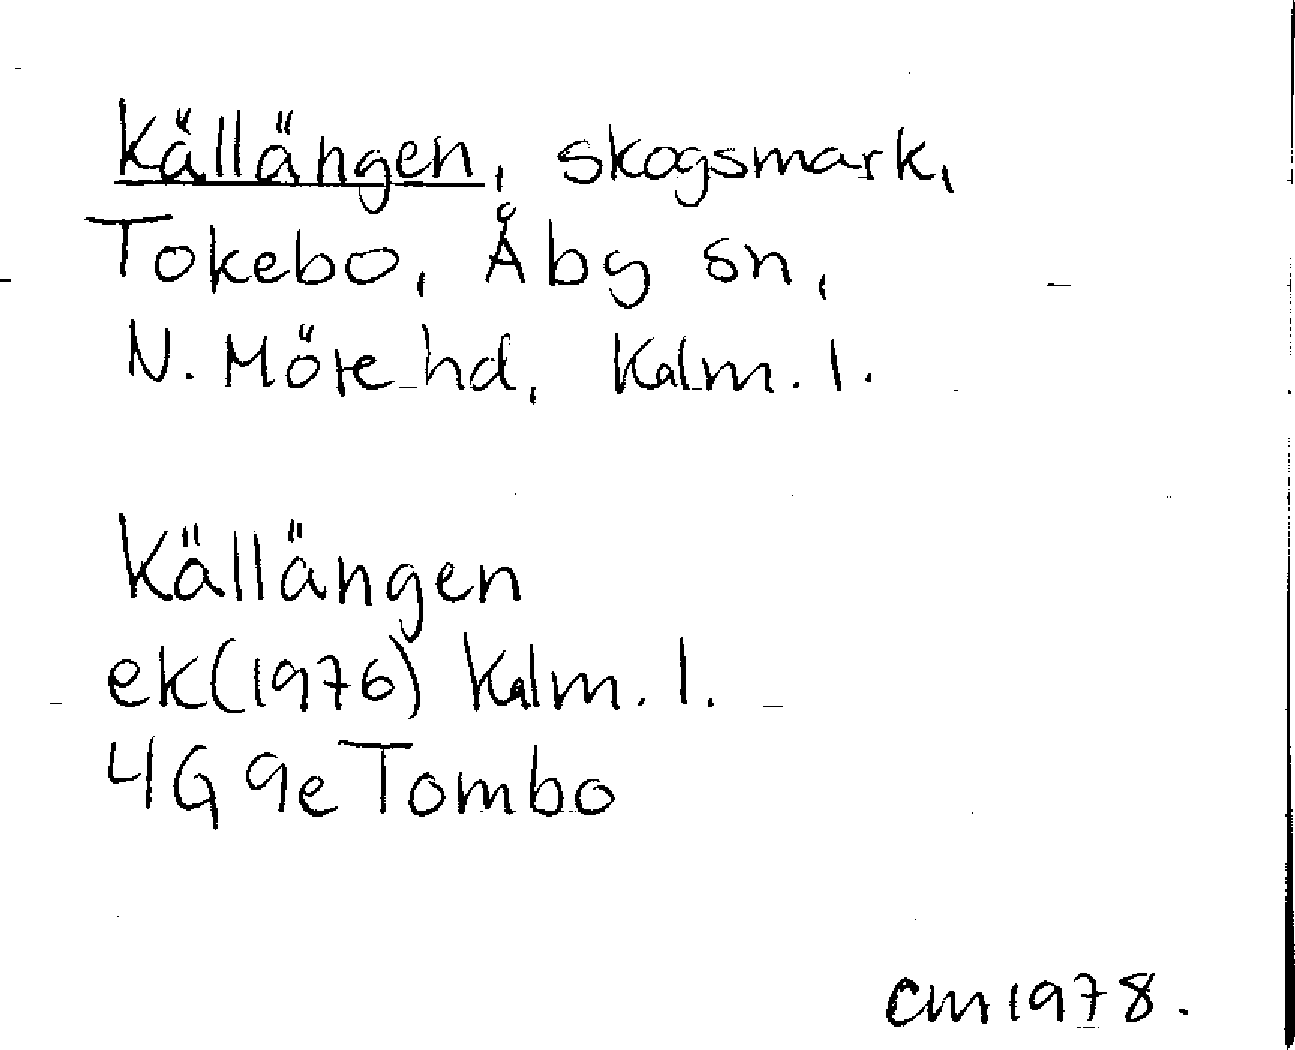 Källängen, skogsmark,
Tokebo, Åby sn,
N. Möre hd, Kalm. l.
Källängen
ek(1976) Kalm. l.
4G 9e Tombo
CM 1978.